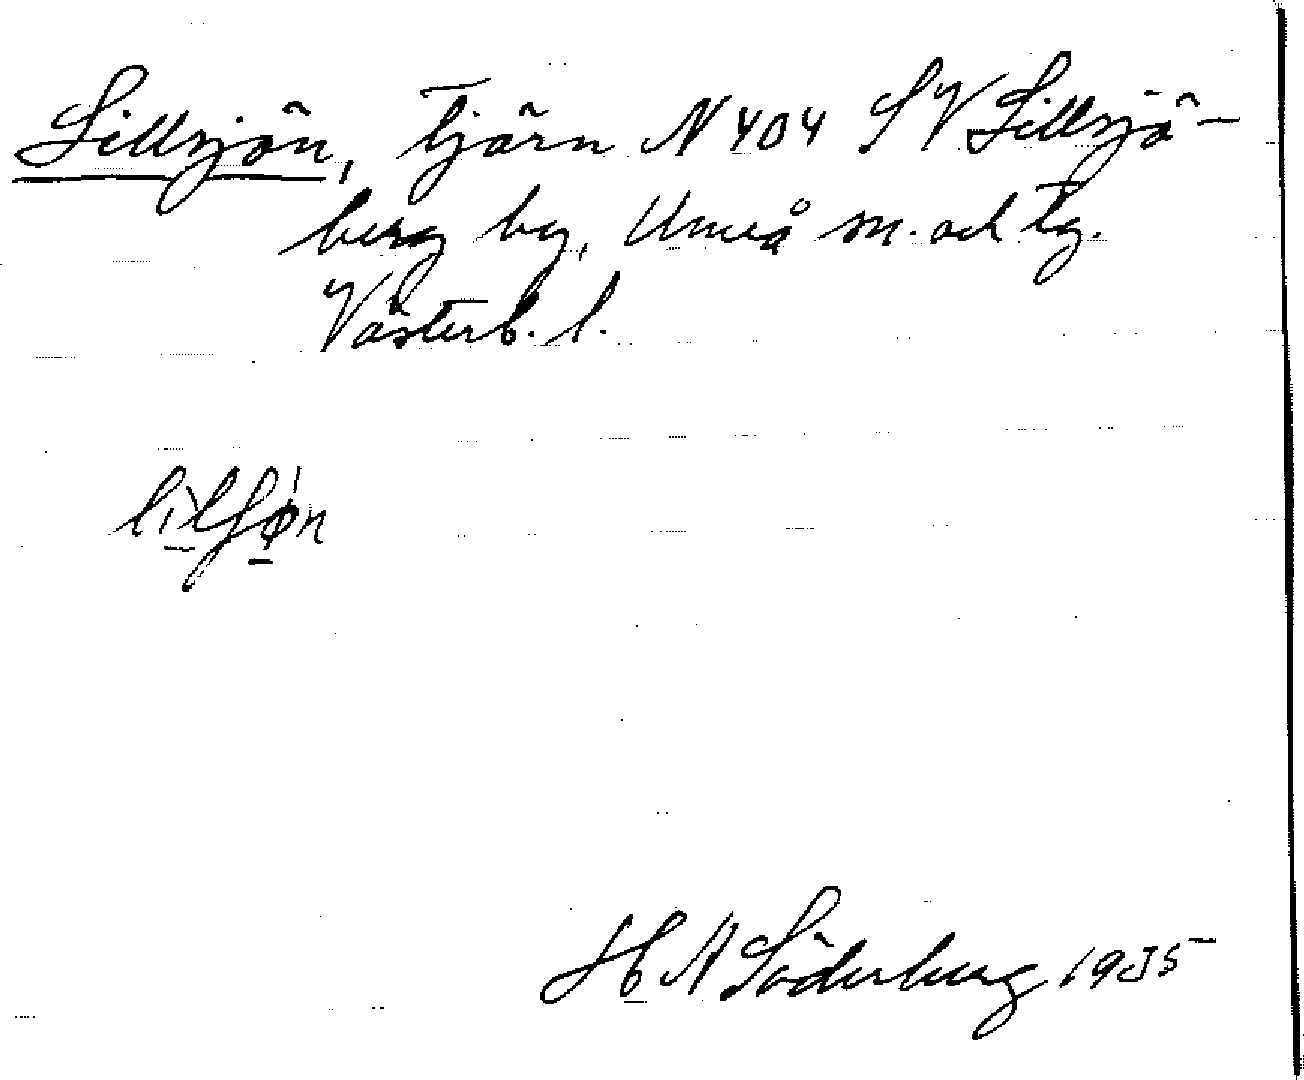 Lillsjön, Tjärn N 404 SV Lillsjö-
berg by, Umeå sn. och tg.
Västerb. l.
lìlʃø̀n
H N Söderberg 1935